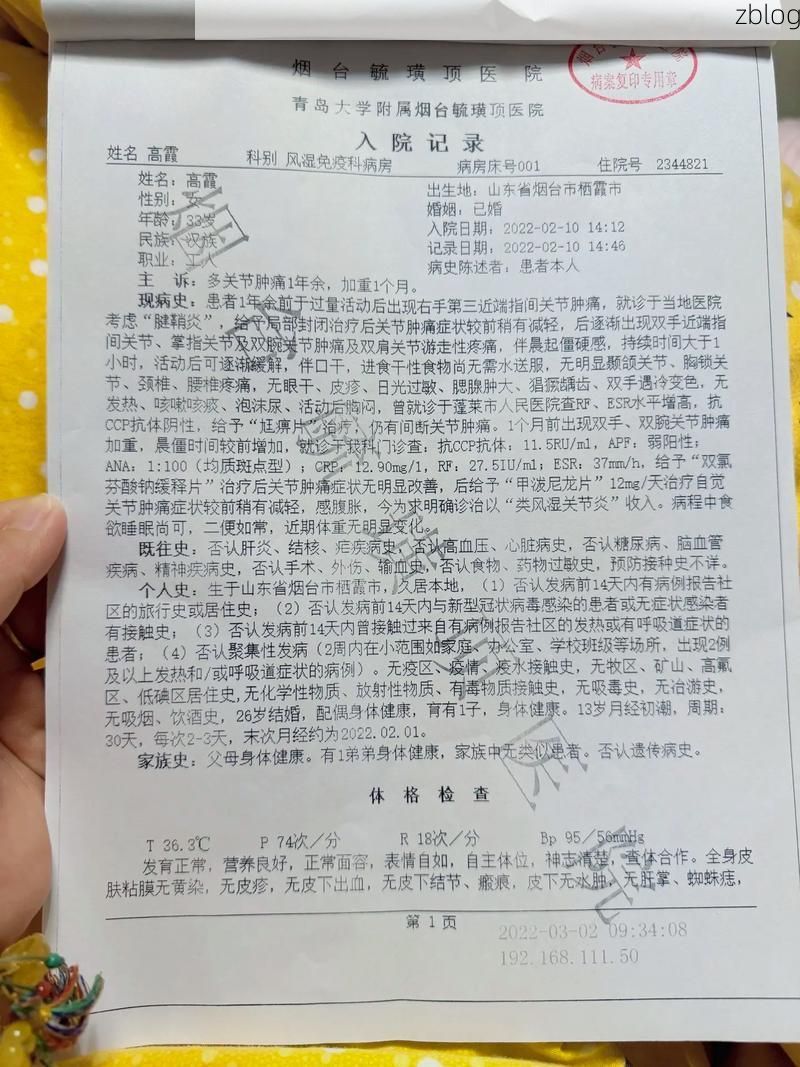 zblog
烟台毓璜顶医院
病案复印专用章
青岛大学附属烟台毓璜顶医院
入院记录
姓名 高霞 科别 风湿免疫科病房 病房床号001 住院号 2344821
姓名：高霞 出生地：山东省烟台市栖霞市
性别：女 婚姻：已婚
年龄：33岁 入院日期：2022-02-10 14:12
民族：汉族 记录日期：2022-02-10 14:46
职业：工人 病史陈述者：患者本人
主 诉：多关节肿痛1年余，加重1个月。
现病史：患者1年余前于过量活动后出现右手第三近端指间关节肿痛，就诊于当地医院
考虑“腱鞘炎”，给予局部封闭治疗后关节肿痛症状较前稍有减轻，后逐渐出现双手近端指
间关节、掌指关节及双腕关节肿痛及双肩关节游走性疼痛，伴晨起僵硬感，持续时间大于1
小时，活动后可逐渐缓解，伴口干，进食干性食物尚无需水送服，无明显颞颌关节、胸锁关
节、颈椎、腰椎疼痛，无眼干、皮疹、日光过敏、腮腺肿大、猖獗龋齿、双手遇冷变色，无
发热、咳嗽咳痰、泡沫尿、活动后胸闷，曾就诊于蓬莱市人民医院查RF、ESR水平增高，抗
CCP抗体阴性，给予“尪痹片”治疗，仍有间断关节肿痛。1个月前出现双手、双腕关节肿痛
加重，晨僵时间较前增加，就诊于我科门诊查：抗CCP抗体：11.5RU/ml，APF：弱阳性；
ANA：1:100（均质斑点型）；CRP：12.90mg/l，RF：27.5IU/ml；ESR：37mm/h，给予“双氯
芬酸钠缓释片”治疗后关节肿痛症状无明显改善，后给予“甲泼尼龙片”12mg/天治疗自觉
关节肿痛症状较前稍有减轻，感腹胀，今为求明确诊治以“类风湿关节炎”收入。病程中食
欲睡眠尚可，二便如常，近期体重无明显变化。
既往史：否认肝炎、结核、疟疾病史，否认高血压、心脏病史，否认糖尿病、脑血管
疾病、精神疾病史，否认手术、外伤、输血史，否认食物、药物过敏史，预防接种史不详。
个人史：生于山东省烟台市栖霞市，久居本地，（1）否认发病前14天内有病例报告社
区的旅行史或居住史；（2）否认发病前14天内与新型冠状病毒感染的患者或无症状感染者
有接触史；（3）否认发病前14天内曾接触过来自有病例报告社区的发热或有呼吸道症状的
患者；（4）否认聚集性发病（2周内在小范围如家庭、办公室、学校班级等场所，出现2例
及以上发热和/或呼吸道症状的病例）。无疫区、疫情、疫水接触史，无牧区、矿山、高氟
区、低碘区居住史，无化学性物质、放射性物质、有毒物质接触史，无吸毒史，无冶游史，
无吸烟、饮酒史，26岁结婚，配偶身体健康，育有1子，身体健康。13岁月经初潮，周期：
30天，每次2-3天，末次月经约为2022.02.01。
家族史：父母身体健康。有1弟弟身体健康，家族中无类似患者。否认遗传病史。
体格检查
T 36.3℃ P 74次／分 R 18次／分 Bp 95／56mmHg
发育正常，营养良好，正常面容，表情自如，自主体位，神志清楚，查体合作。全身皮
肤粘膜无黄染，无皮疹，无皮下出血，无皮下结节、瘢痕，皮下无水肿，无肝掌、蜘蛛痣，
第 1 页
2022-03-02 09:34:08
192.168.111.50
烟台毓璜顶医院